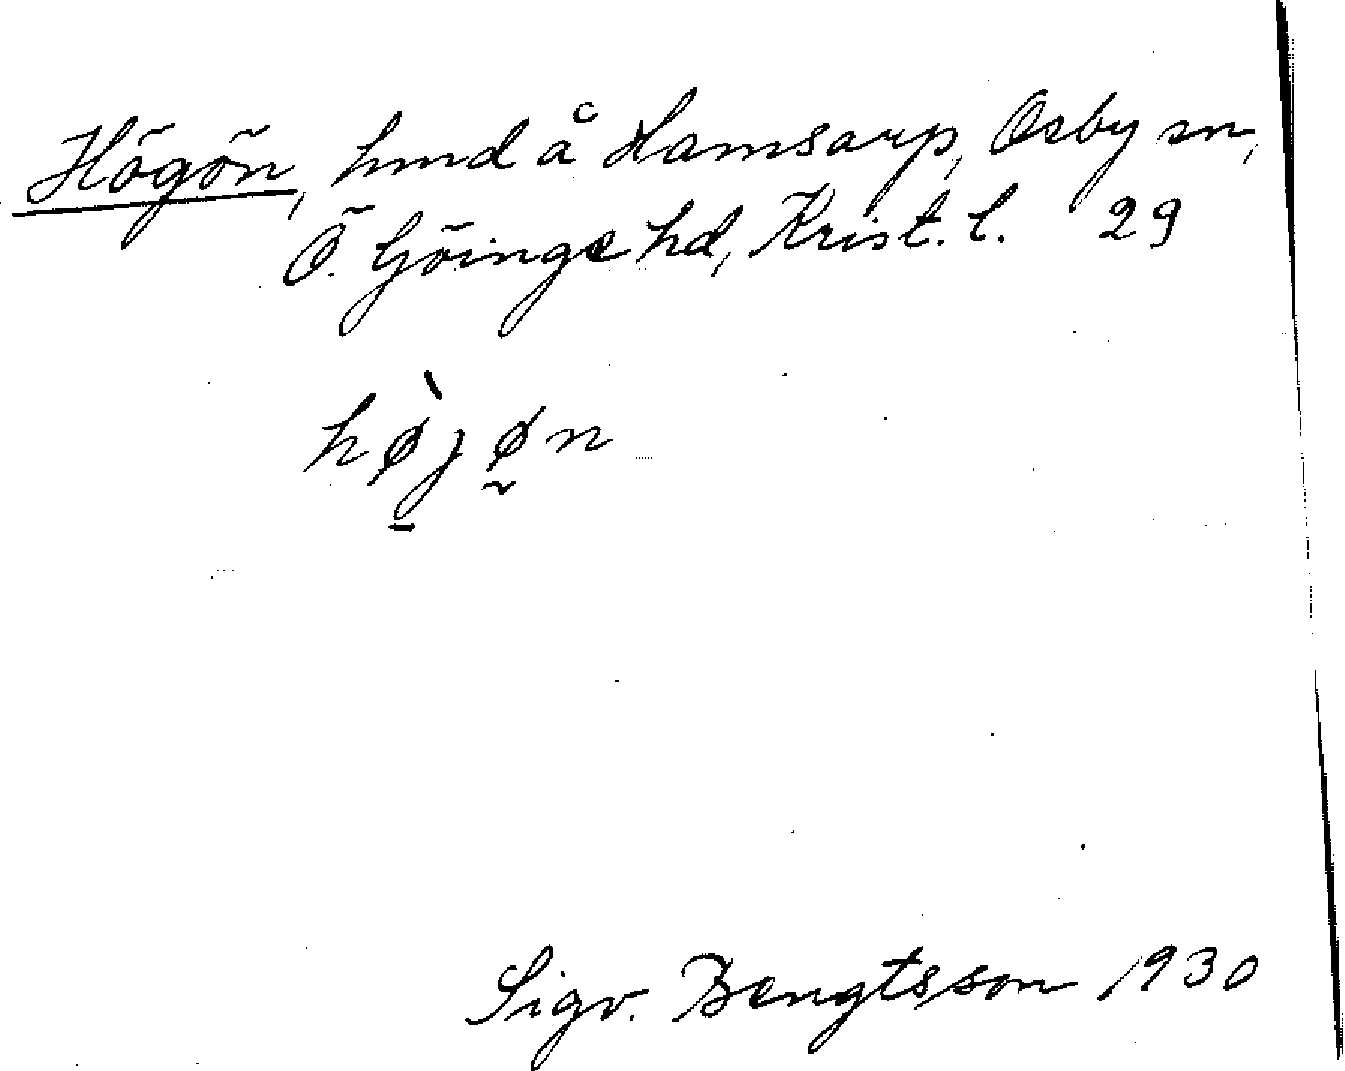 Högön, hmd å Hamsarp, Osby sn,
Ö. Göinge hd, Krist. l. 29
hø̀jøn
Sigv. Bengtsson 1930